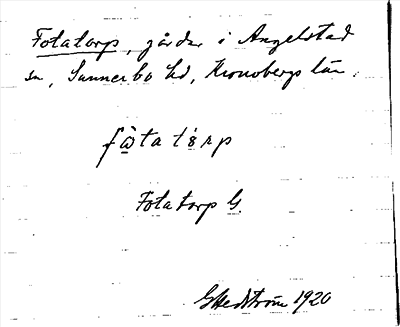 Fotatorp, gårdar i Angelstad
sn, Sunnerbo hd, Kronobergs län.
fåtatårp
Fotatorp G.
G Hedström 1920